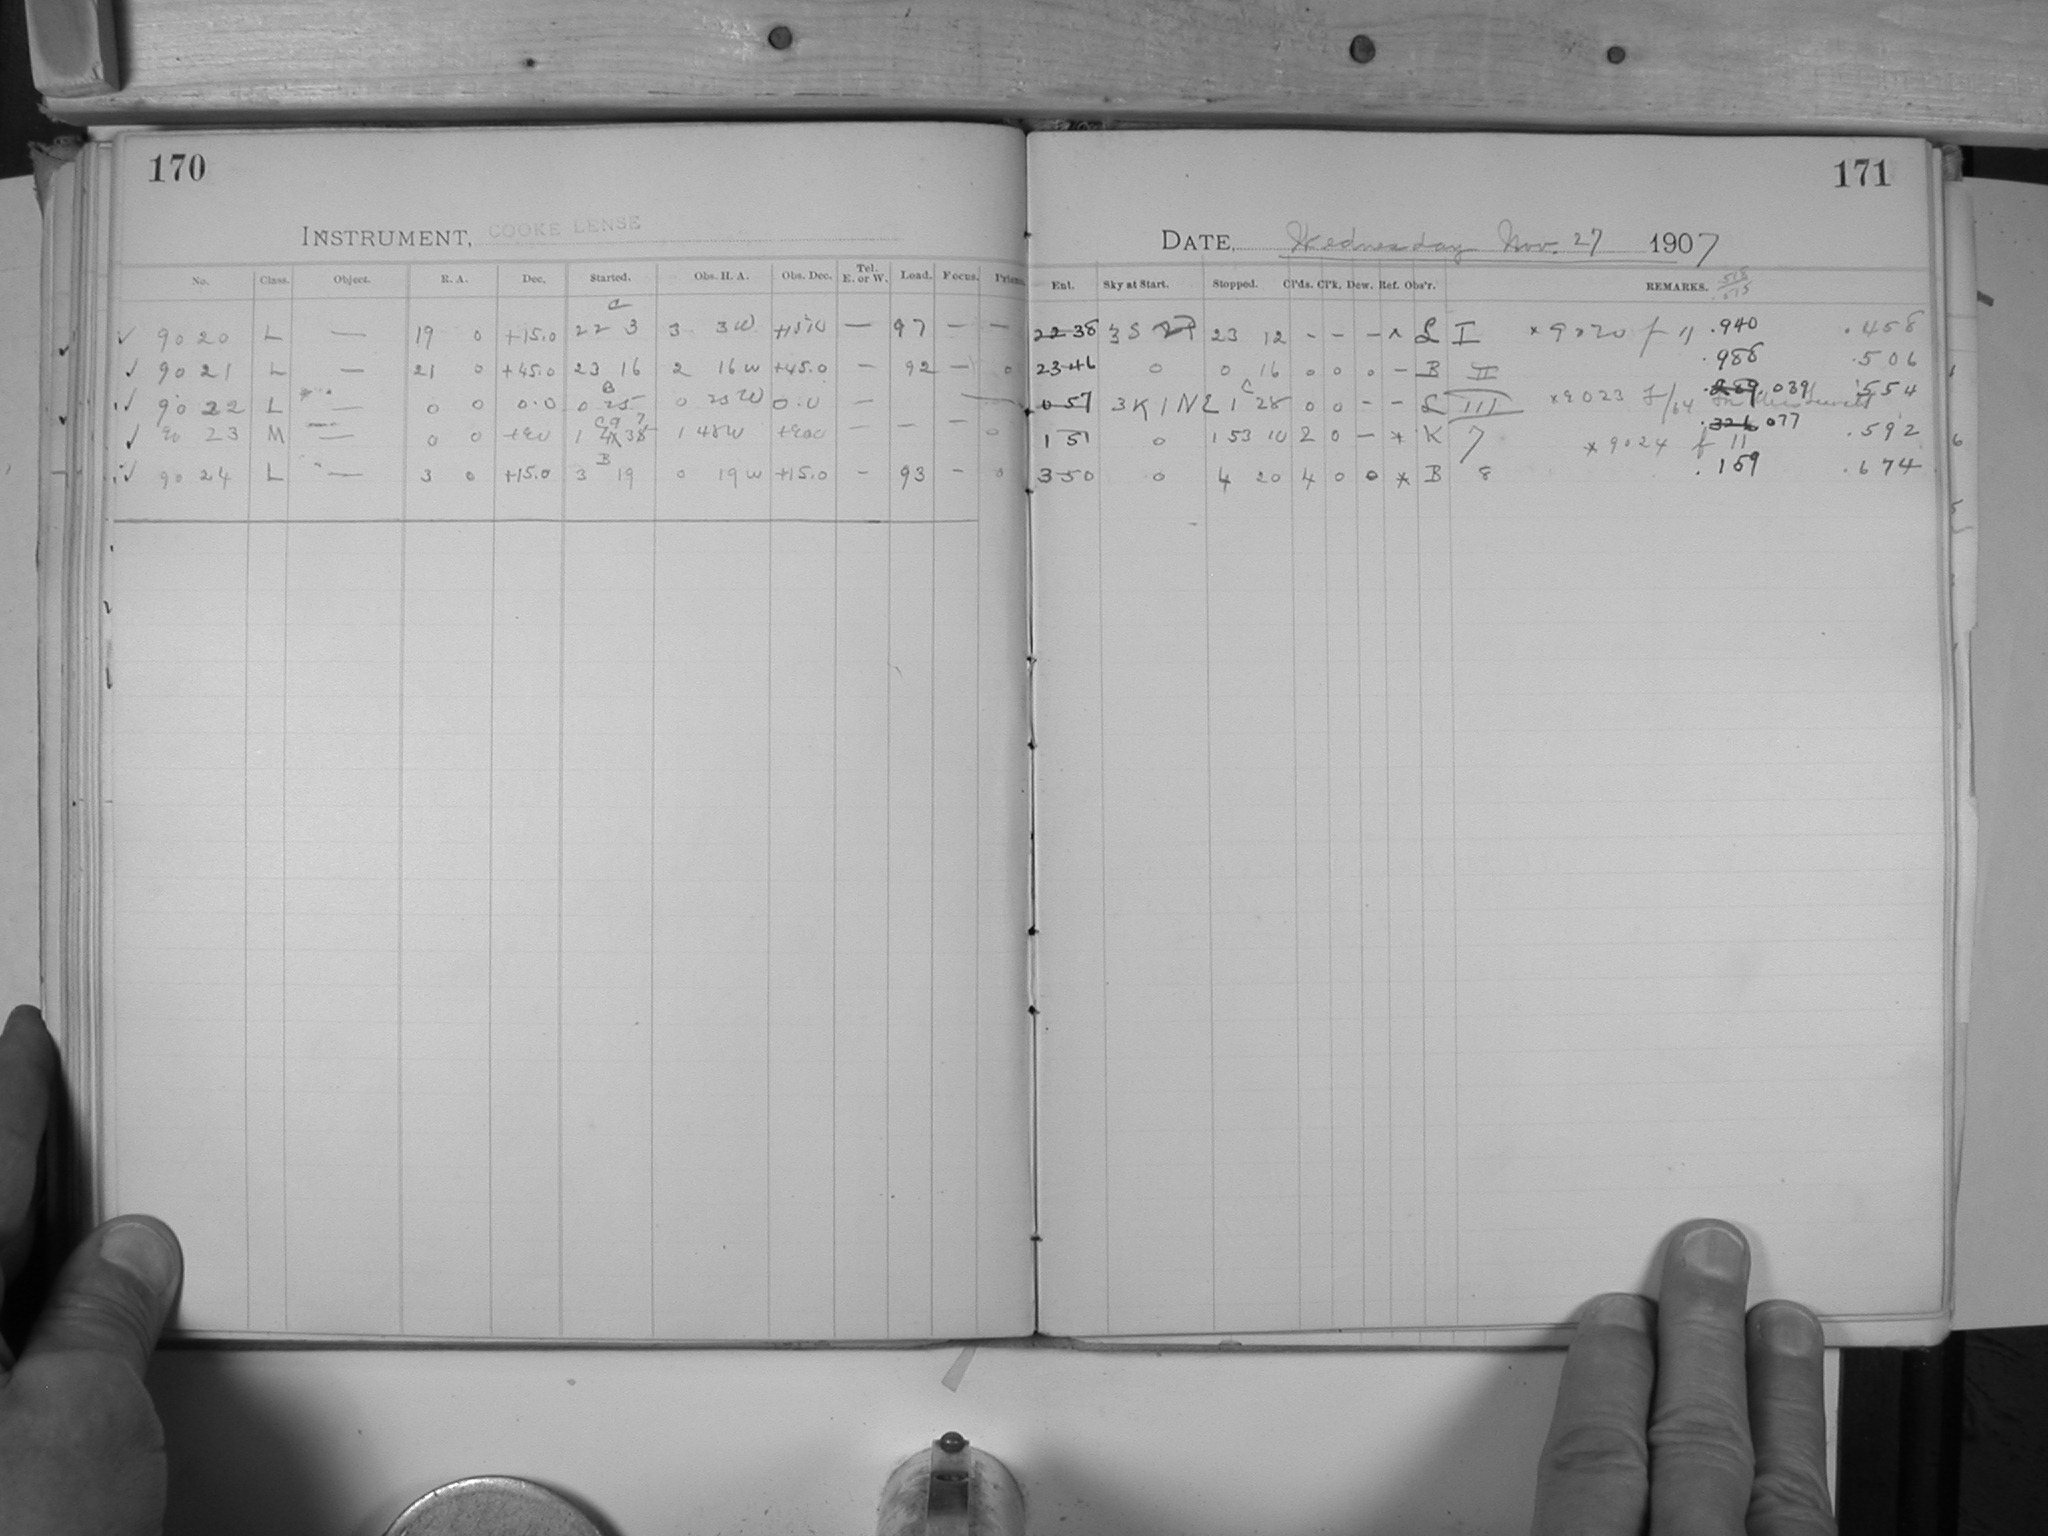 170
INSTRUMENT, COOKE LENSE
No. Class. Object. R. A. Dec. Started. Obs. H. A. Obs. Dec. Tel. E. or W. Load. Focus. Prisms.
C
✓ 9020 L — 19 0 +15.0 22 3 3 3W +15.0 — 97 — —
✓ 9021 L — 21 0 +45.0 23 16 2 16W +45.0 — 92 — 0
B
✓ 9022 L — 0 0 0.0 0 25 0 25W 0.0 —
✓ 90 23 M — 0 0 +90 1 38 1 48W +900 — — — 0
B
✓ 9024 L — 3 0 +15.0 3 19 0 19W +15.0 — 93 — 0
171
DATE, Wednesday Nov. 27 1907
Ent. Sky at Start. Stopped. Cl'ds. Cl'k. Dew. Ref. Obs'r. REMARKS.
22 38 3S 23 12 - - - L I × 9020 f 11 .940 .458
23 46 0 0 16 0 0 0 — B II .986 .506
0 57 3K1N 1 28 0 0 - - L III ×9023 f/64 .039 .554
1 51 0 1 53 10 2 0 — * K 7 × 9024 f 11 .326 077 .592
3 50 0 4 20 4 0 0 * B 8 .159 .674